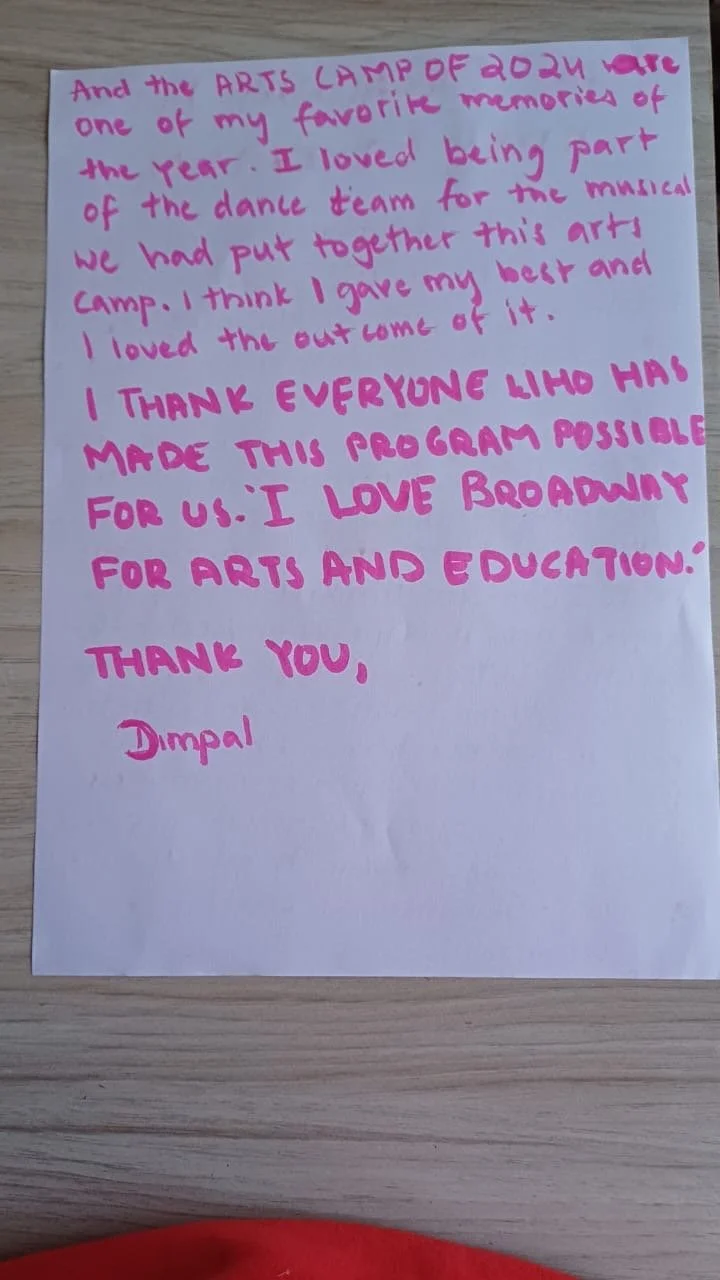 And the ARTS CAMP OF 2024 are
one of my favorite memories of
the year. I loved being part
of the dance team for the musical
we had put together this arts
camp. I think I gave my best and
I loved the outcome of it.
I THANK EVERYONE WHO HAS
MADE THIS PROGRAM POSSIBLE
FOR US. "I LOVE BROADWAY
FOR ARTS AND EDUCATION."
THANK YOU,
Dimpal